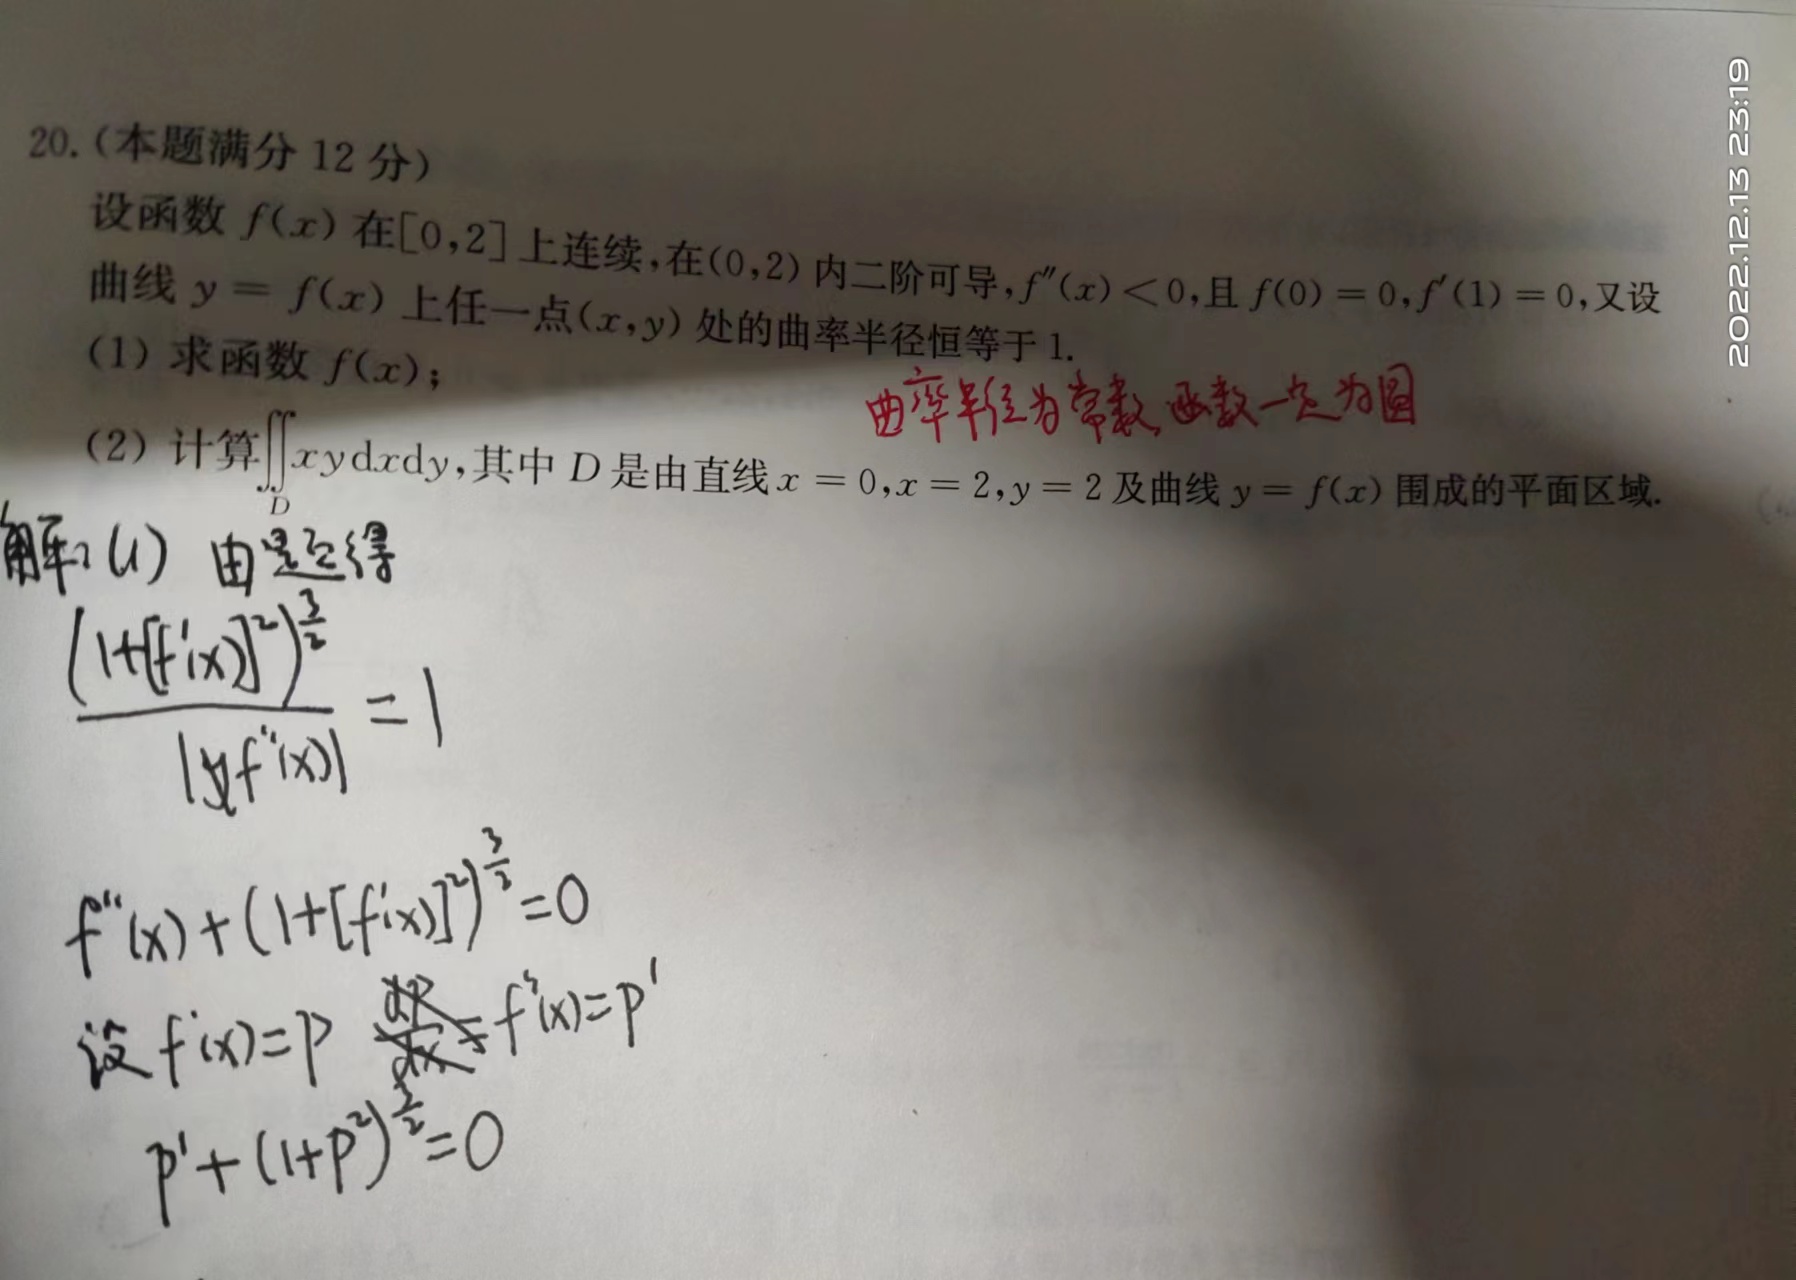 20.(本题满分 12 分)
设函数 f(x) 在[0,2]上连续,在(0,2)内二阶可导,f″(x)<0,且 f(0)=0,f′(1)=0,又设
曲线 y=f(x) 上任一点(x,y)处的曲率半径恒等于 1.
(1) 求函数 f(x);
曲率半径为常数,函数一定为圆
(2) 计算∬_D xydxdy,其中 D 是由直线 x=0,x=2,y=2 及曲线 y=f(x) 围成的平面区域.
解:(1) 由题得
(1+[f'(x)]²)^(3/2) / |f''(x)| = 1
f''(x)+(1+[f'(x)]²)^(3/2)=0
设 f'(x)=p f''(x)=p'
p'+(1+p²)^(3/2)=0
2022.12.13 23:19